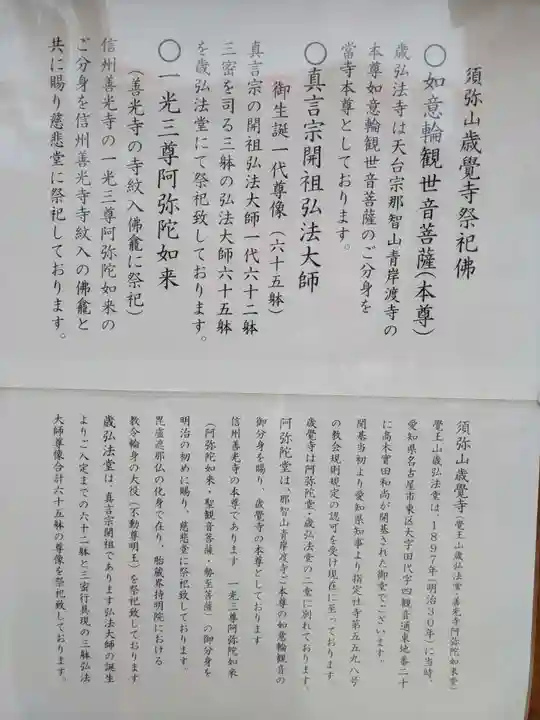 須弥山歳覺寺祭祀佛
〇如意輪観世音菩薩(本尊)
歳弘法寺は天台宗那智山青岸渡寺の
本尊如意輪観世音菩薩のご分身を
當寺本尊としております。
〇真言宗開祖弘法大師
御生誕一代尊像(六十五躰)
真言宗の開祖弘法大師一代六十二躰
三密を司る三躰の弘法大師六十五躰
を歳弘法堂にて祭祀致しております。
〇一光三尊阿弥陀如来
(善光寺の寺紋入佛龕に祭祀)
信州善光寺の一光三尊阿弥陀如来の
ご分身を信州善光寺寺紋入の佛龕と
共に賜り慈悲堂に祭祀しております。
須弥山歳覺寺(覺王山歳弘法堂・善光寺阿弥陀如来堂)
覺王山歳弘法堂は、1897年(明治30年)に当時、
愛知県名古屋市東区大字田代字四観音道東地番二十
に高木實田和尚が開基された御堂でございます。
開基当初より愛知県知事より指定社寺第五五九八号
の教会規則規定の認可を受け現在に至っております
歳覺寺は阿弥陀堂・歳弘法堂の二堂に別れております。
阿弥陀堂は、那智山青岸渡寺ご本尊の如意輪観音の
御分身を賜り、歳覺寺の本尊としております
信州善光寺の本尊であります 一光三尊阿弥陀如来
(阿弥陀如来・聖観音菩薩・勢至菩薩)の御分身を
明治の初めに賜り、慈悲堂に祭祀致しております。
毘盧遮那仏の化身で在り、胎蔵界持明院における
教令輪身の大役(不動尊明王)を祭祀致しております
歳弘法堂は、真言宗開祖であります弘法大師の誕生
よりご入定までの六十二躰と三密行具現の三躰弘法
大師尊像合計六十五躰の尊像を祭祀致しております。